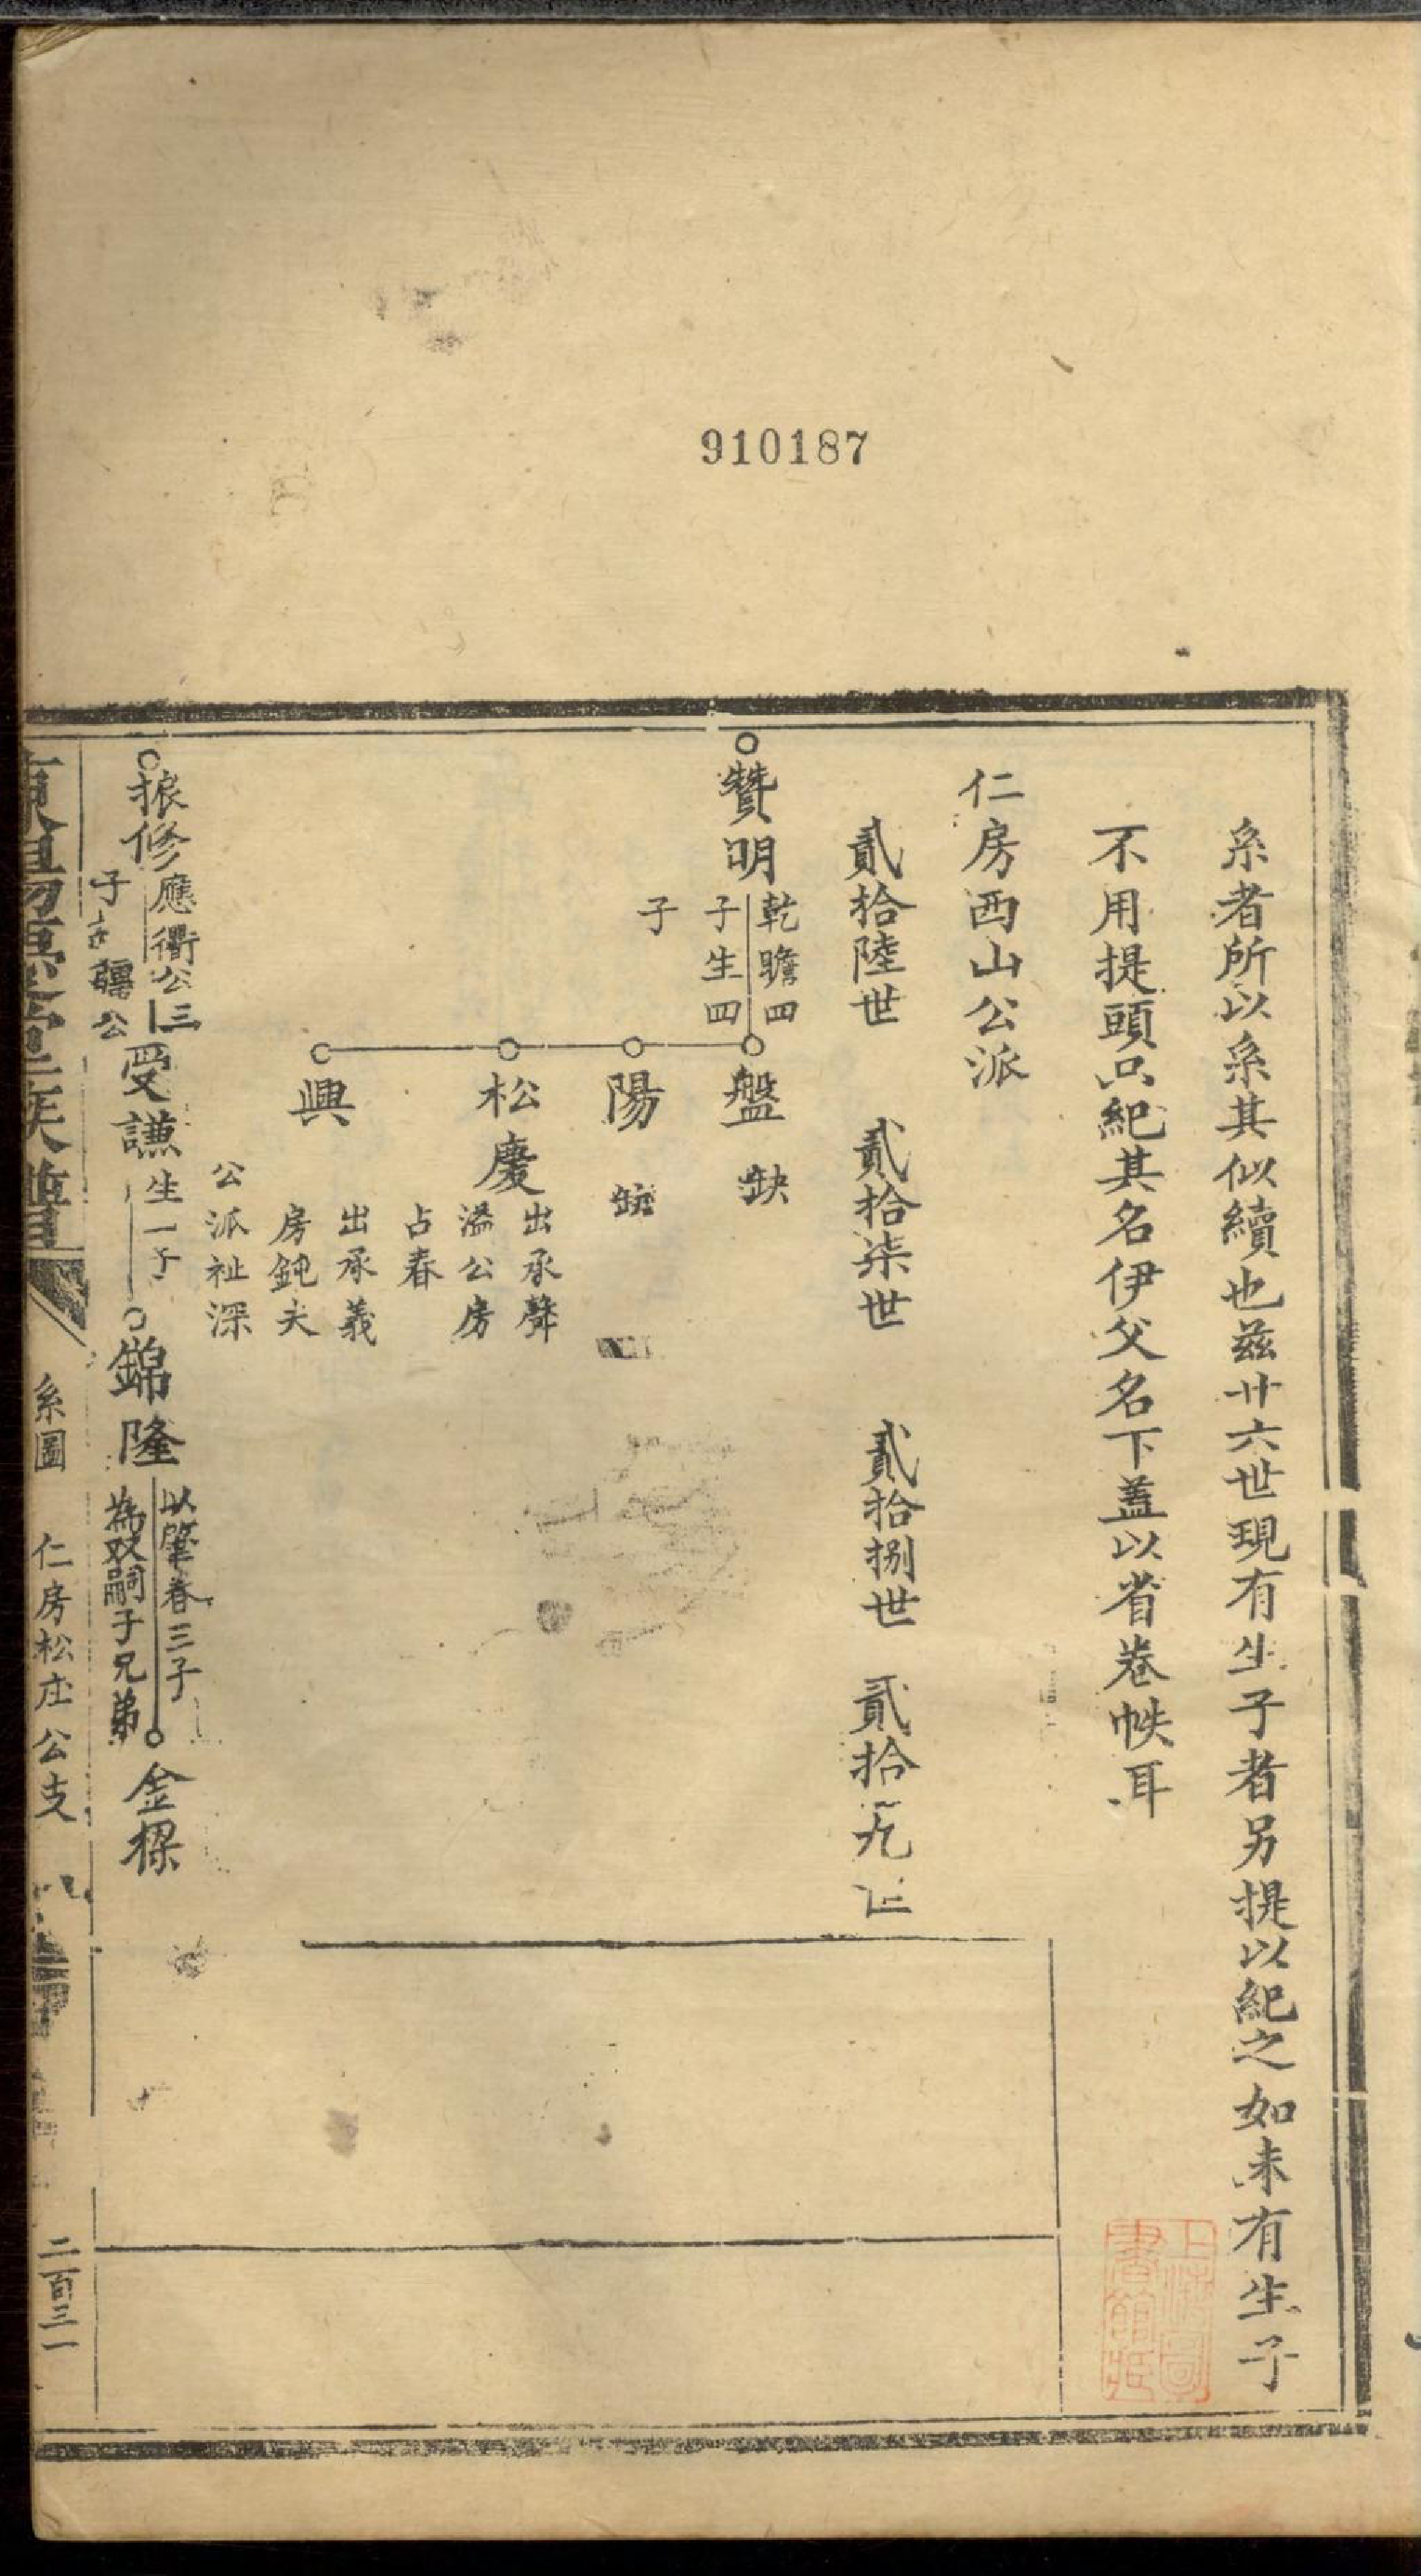 910187
系者所以系其似續也兹廿六世現有生子者另提以紀之如未有生子
不用提頭只紀其名伊父名下蓋以省卷帙耳
仁房西山公派
貳拾陸世 貳拾柒世 貳拾捌世 貳拾九世
贊明
乾瞻四
子生四
子
盤 缺
陽 缺
松慶
出承聲
溢公房
占春
興
出承義
房鈍夫
公派祉深
振修
應衢公三
子 疆公
受謙 生一子
錦隆
以肇春三子
為双嗣子兄弟
金樑
系圖 仁房松庄公支
二百三一
上海圖
書館藏